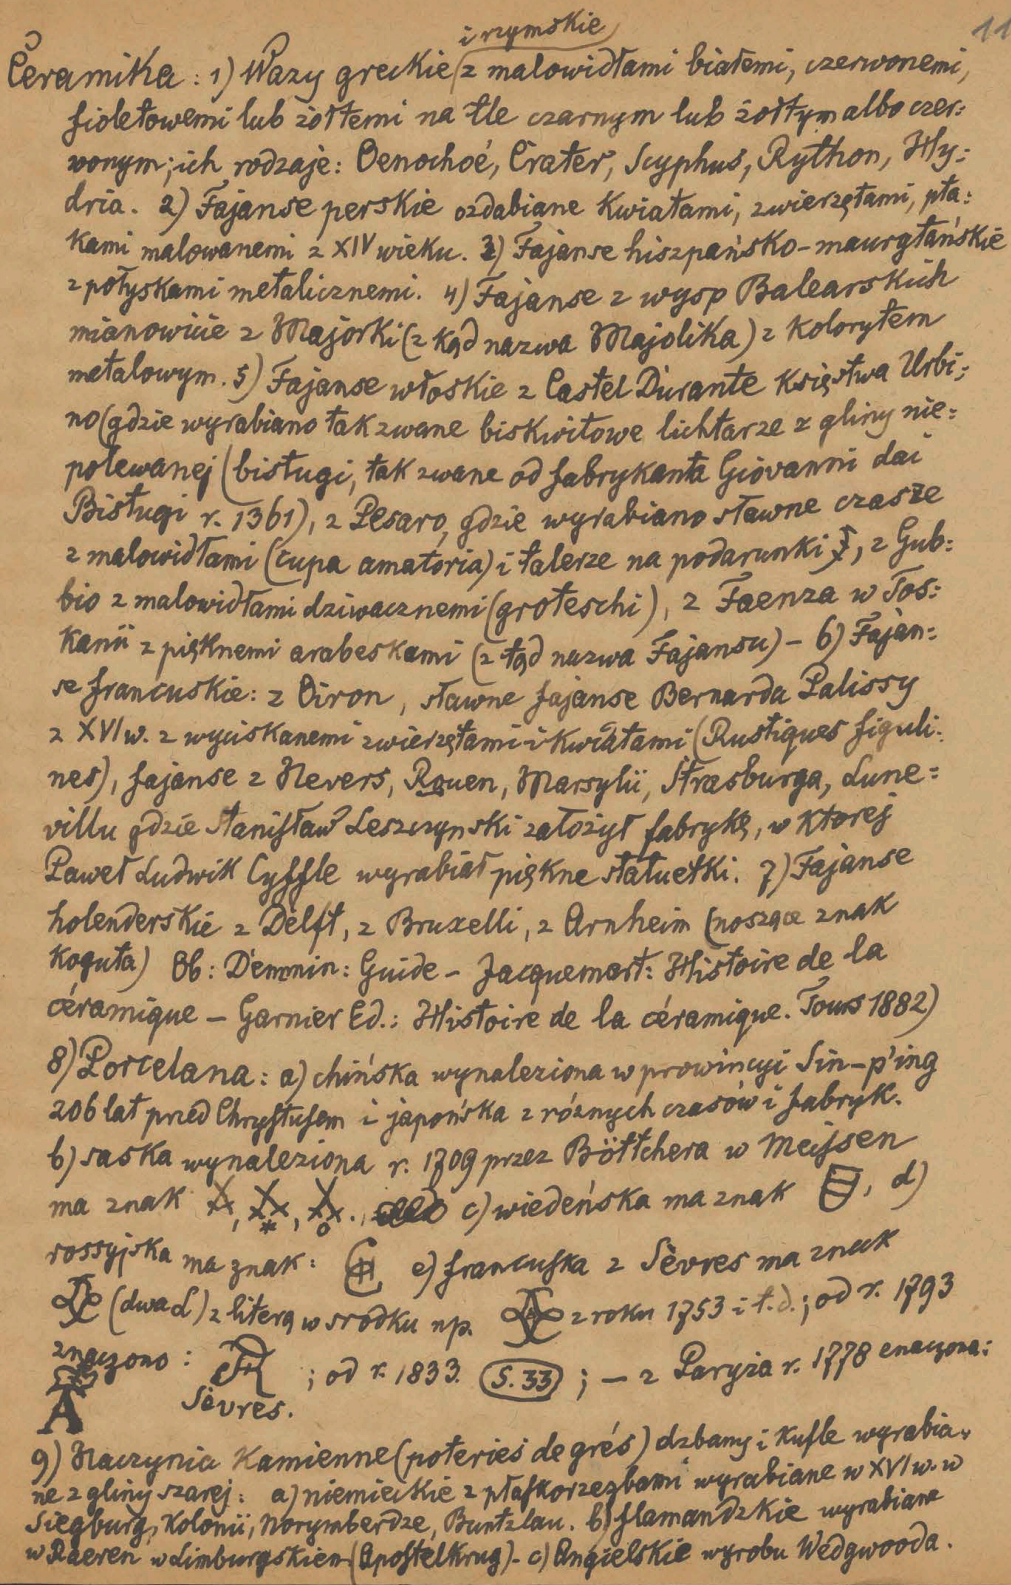 11
i rzymskie
Ceramika: 1) Wazy greckie (z malowidłami białemi, czerwonemi,
fioletowemi lub żółtemi na tle czarnym lub żółtym albo czer=
wonym; ich rodzaje: Oenochoé, Crater, Scyphus, Rython, Hy=
dria. 2) Fajanse perskie ozdabiane kwiatami, zwierzętami, pta=
kami malowanemi z XIV wieku. 3) Fajanse hiszpańsko-maurytańskie
z połyskami metalicznemi. 4) Fajanse z wysp Balearskich
mianowicie z Majorki (z kąd nazwa Majolika) z kolorytem
metalowym. 5) Fajanse włoskie z Castel Durante Księstwa Urbi=
no (gdzie wyrabiano tak zwane biskwitowe lichtarze z gliny nie=
polewanej (bistugi, tak zwane od fabrykanta Giovanni dai
Bistugi r. 1361), z Pesaro, gdzie wyrabiano sławne czasze
z malowidłami (cupa amatoria) i talerze na podarunki, z Gub=
bio z malowidłami dziwacznemi (groteschi), z Faenza w Tos=
kanii z pięknemi arabeskami (z tąd nazwa Fajansu) – 6) Fajan=
se francuskie: z Oiron, sławne fajanse Bernarda Palissy
z XVI w. z wyciskanemi zwierzętami i kwiatami (Rustiques figuli=
nes), fajanse z Nevers, Rouen, Marsylii, Strasburga, Lune=
villu gdzie Stanisław Leszczynski założył fabrykę, w ktorej
Paweł Ludwik Cyffle wyrabiał piękne statuetki. 7) Fajanse
holenderskie z Delft, z Bruxelli, z Arnheim (noszące znak
koguta) Ob: Demmin: Guide – Jacquemart: Histoire de la
céramique – Garnier Ed.: Histoire de la céramique. Tours 1882)
8) Porcelana: a) chińska wynaleziona w prowincyi Sin-p'ing
206 lat przed Chrystusem i japońska z różnych czasów i fabryk.
b) saska wynaleziona r. 1709 przez Böttchera w Mejsen
ma znak , , . , c) wiedeńska ma znak , d)
rossyjska ma znak: e) francuska z Sèvres ma znak
(dwa L) z literą w srodku np. z roku 1753 i t.d.; od r. 1793
znaczono: R ; od r. 1833. S. 33 ; – z Paryża r. 1778 znaczona:
A Sèvres.
9) Naczynia Kamienne (poteries de grés) dzbany i kufle wyrabia=
ne z gliny szarej: a) niemieckie z płaskorzezbami wyrabiane w XVI w. w
Siegburg, Kolonii, Norymberdze, Buntzlau. b) flamandzkie wyrabiane
w Raeren w Limburgskiem (Apostelkrug) – c) Angielskie wyrobu Wedgwooda.